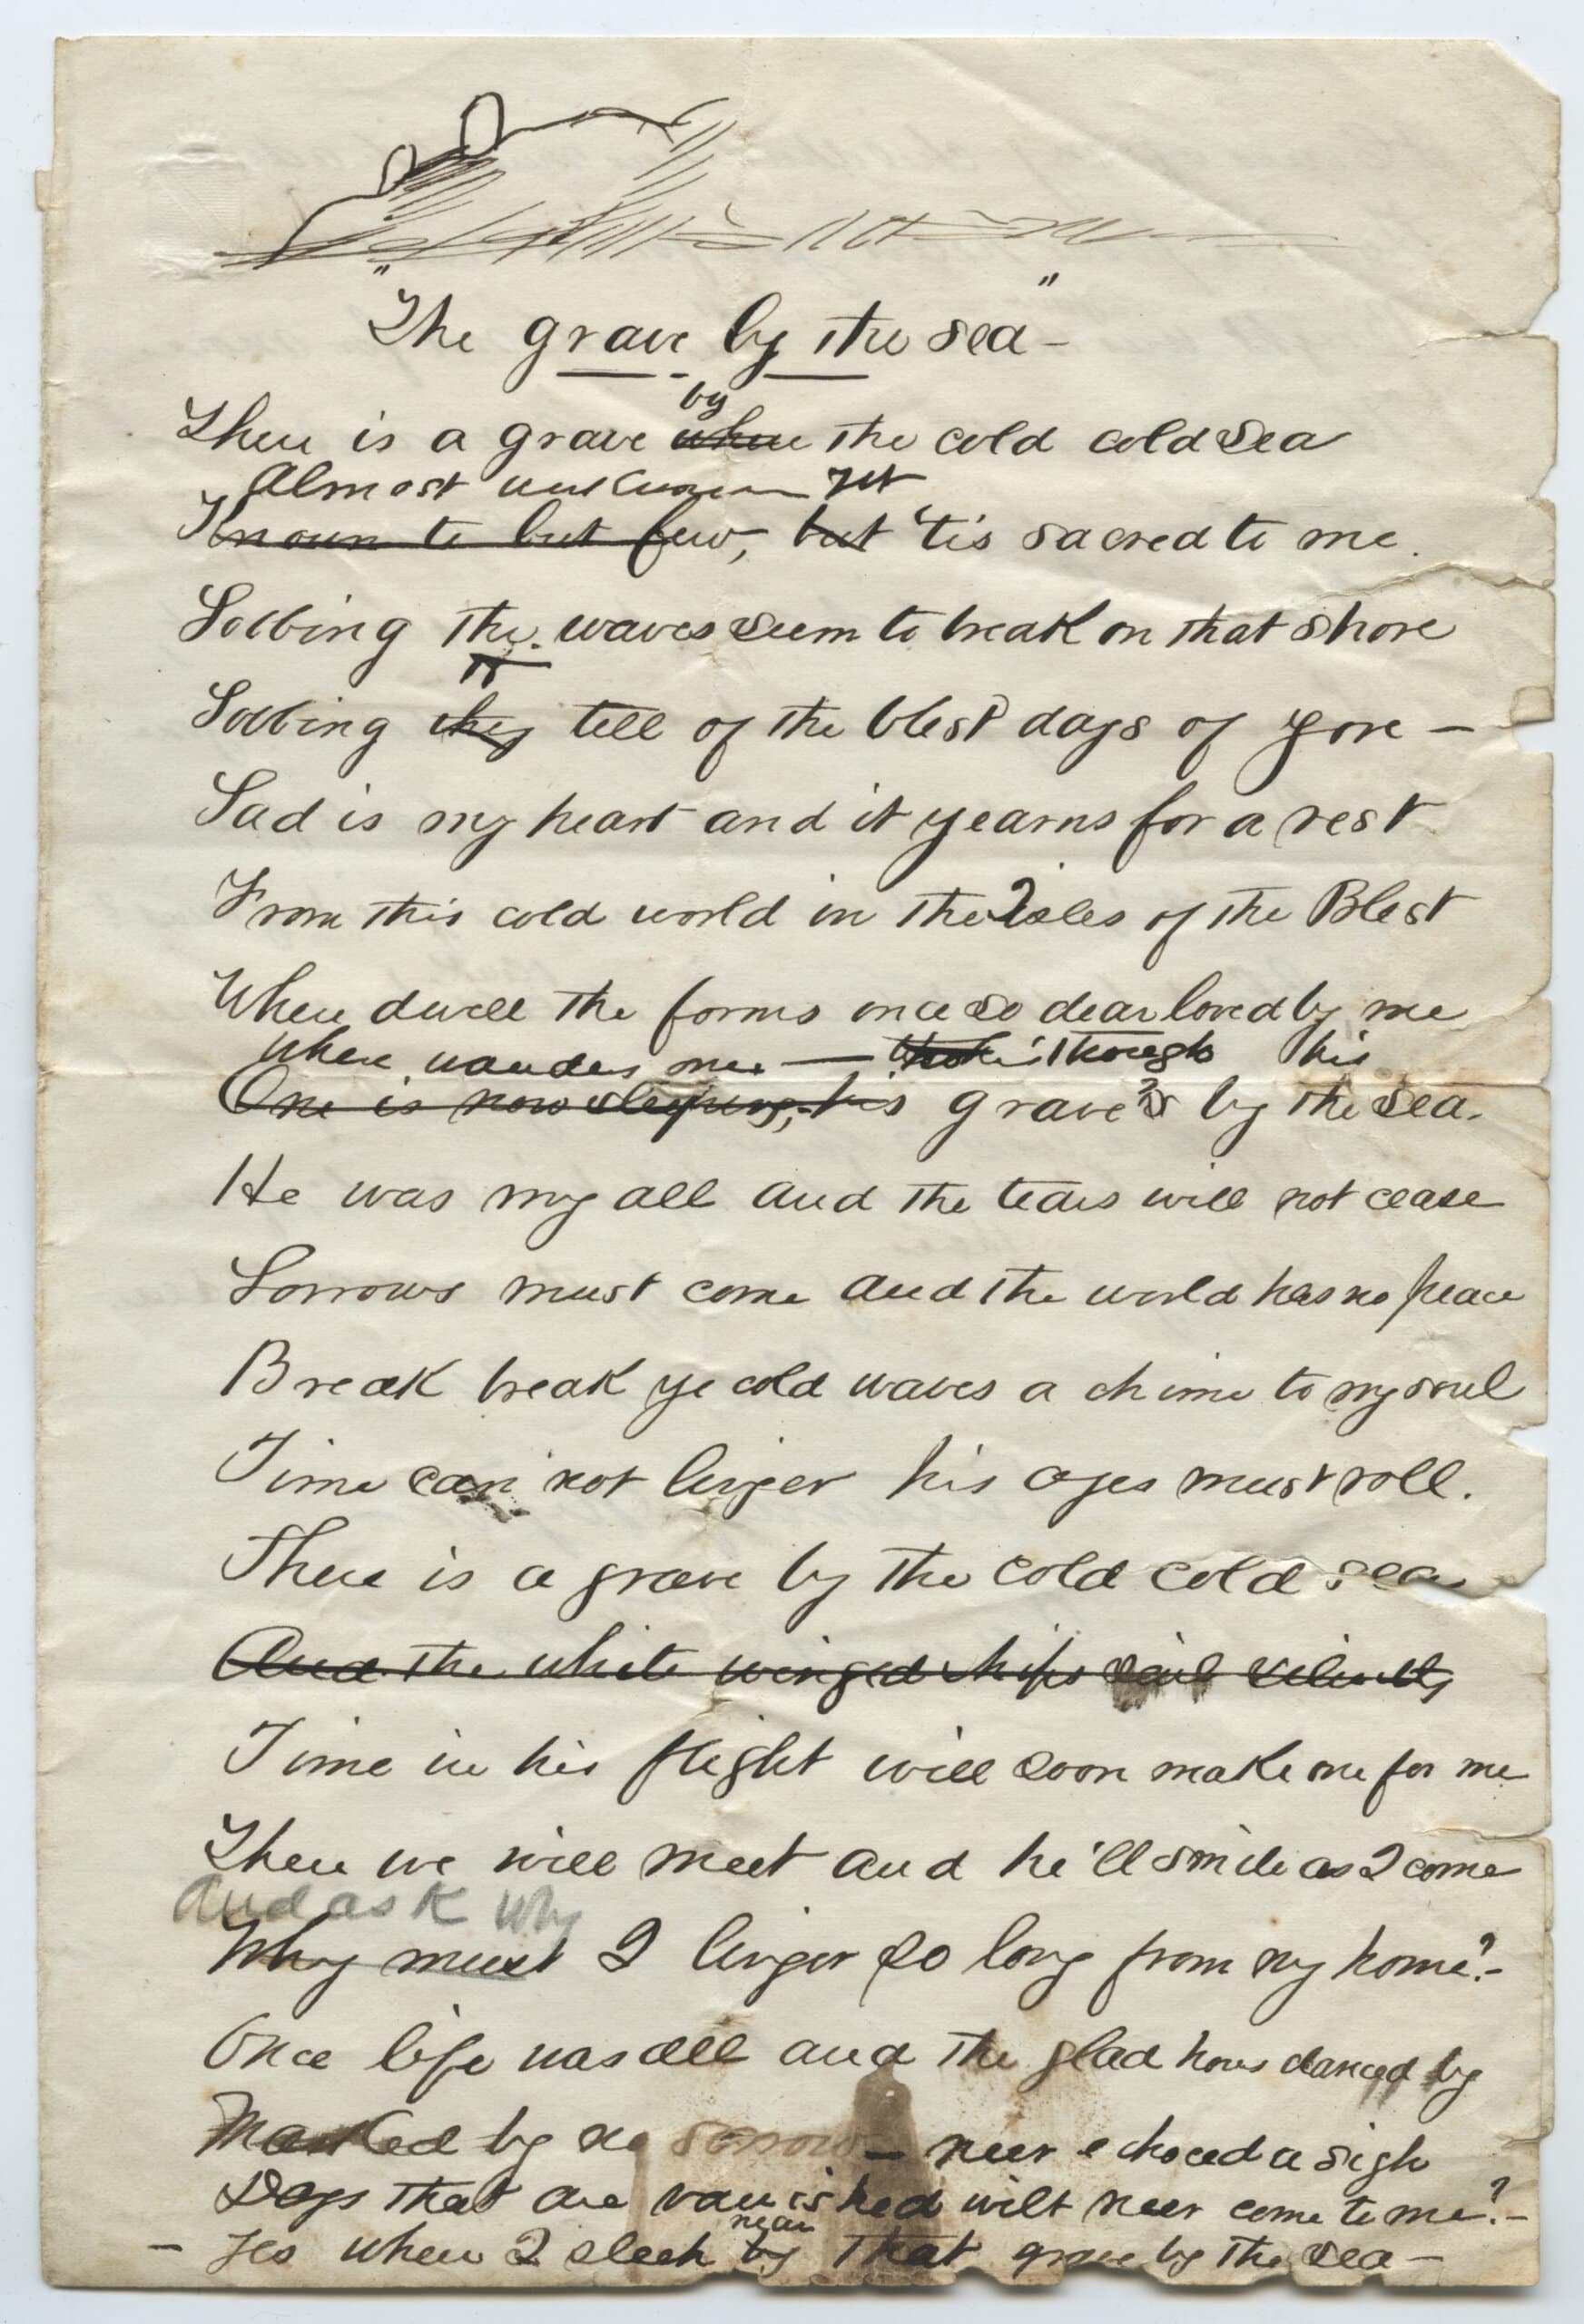 "The grave by the sea"-
by
There is a grave where the cold cold sea
Almost unknown yet
Known to but few, but 'tis sacred to me.
Sobbing the waves seem to break on that shore
Sobbing they tell of the blest days of yore -
Sad is my heart and it yearns for a rest
From this cold world in the Isles of the Blest
Where dwell the forms once so dear loved by me
where wanders one — though his
One is now sleeping, his grave's by the sea.
He was my all and the tears will not cease
Sorrows must come and the world has no peace
Break break ye cold waves a chime to my soul
Time can not linger his ages must roll.
There is a grave by the cold cold sea
And the white winged ships sail silently
Time in his flight will soon make one for me
There we will meet and he'll smile as I come
And ask why
Why must I linger so long from my home?-
Once life was all and the glad hours danced by
Marked by no sorrow - neer echoed a sigh
Days that are vanished wilt neer come to me?-
near
- Yes when I sleep by that grave by the sea -